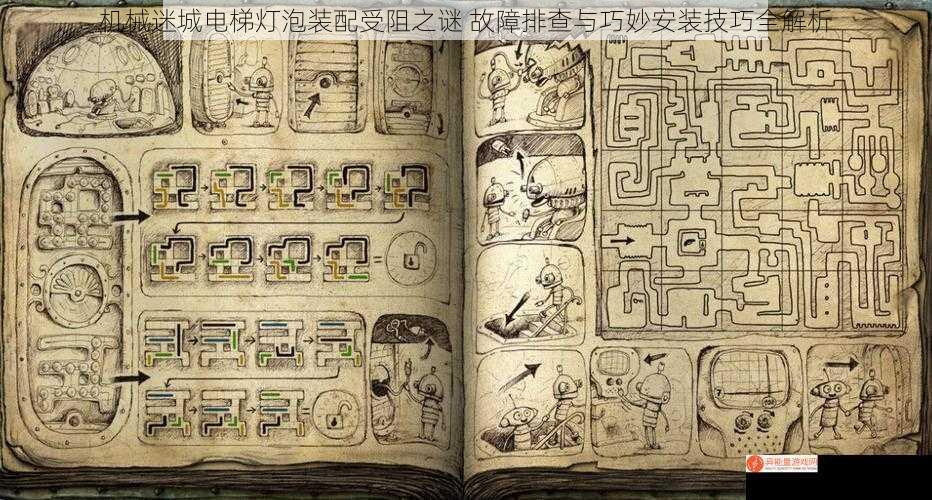 机械迷城电梯灯泡装配受阻之谜 故障排查与巧妙安装技巧全解析
7
异能量游戏网